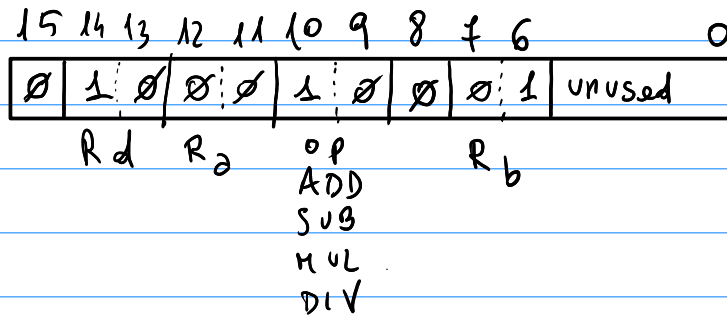 15 14 13 12 11 10 9 8 7 6 0
0 1 0 0 0 1 0 0 0 1 unused
Rd Ra OP Rb
ADD
SUB
MUL
DIV